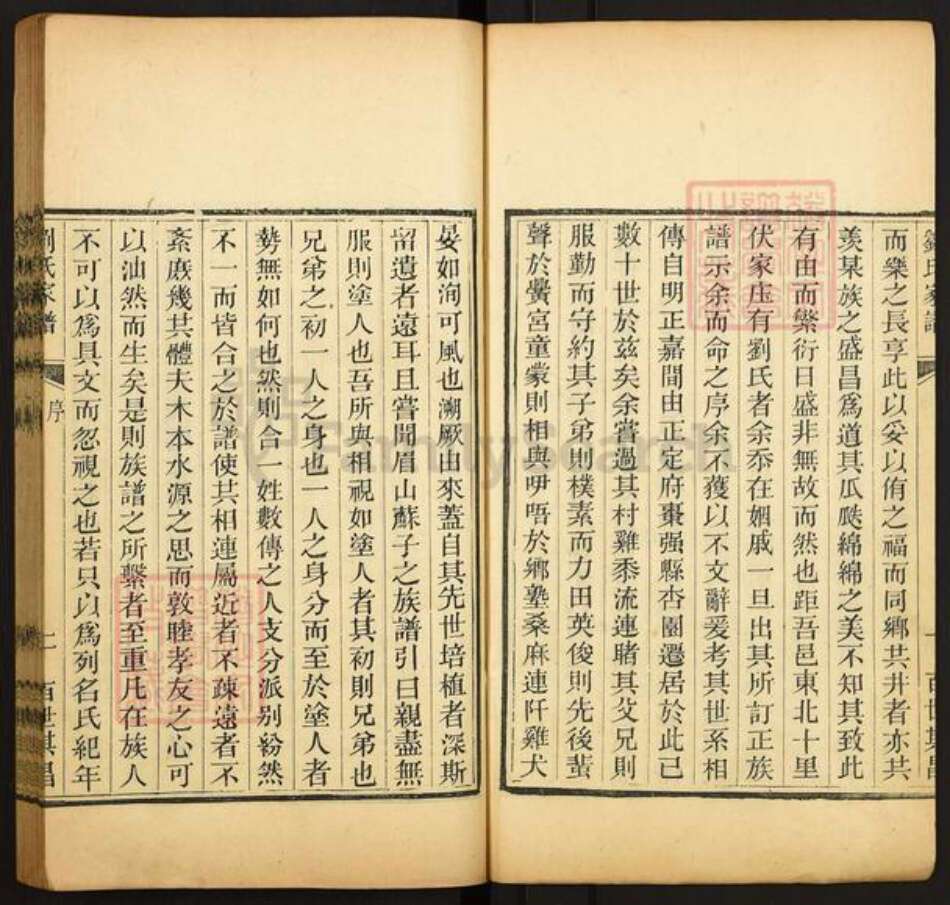 劉氏家譜
百世其昌
而樂之長享此以妥以侑之福而同鄉共井者亦共
羨某族之盛昌爲道其瓜瓞綿綿之美不知其致此
有由而繁衍日盛非無故而然也距吾邑東北十里
伏家庄有劉氏者余忝在姻戚一旦出其所訂正族
譜示余而命之序余不獲以不文辭爰考其世系相
傳自明正嘉間由正定府棗强縣杏園遷居於此已
數十世於兹矣余嘗過其村雞黍流連睹其父兄則
服勤而守約其子弟則樸素而力田英俊則先後蜚
聲於黌宫童蒙則相與咿唔於鄉塾桑麻連阡雞犬
晏如洵可風也溯厥由來蓋自其先世培植者深斯
留遺者遠耳且嘗聞眉山蘇子之族譜引曰親盡無
服則塗人也吾所與相視如塗人者其初則兄弟也
兄弟之初一人之身也一人之身分而至於塗人者
勢無如何也然則合一姓數傳之人支分派别紛然
不一而皆合之於譜使其相連屬近者不疎遠者不
紊庶幾其體夫木本水源之思而敦睦孝友之心可
以油然而生矣是則族譜之所繫者至重凡在族人
不可以爲具文而忽視之也若只以爲列名氏紀年
劉氏家譜
序
二
百世其昌
FamilySearch